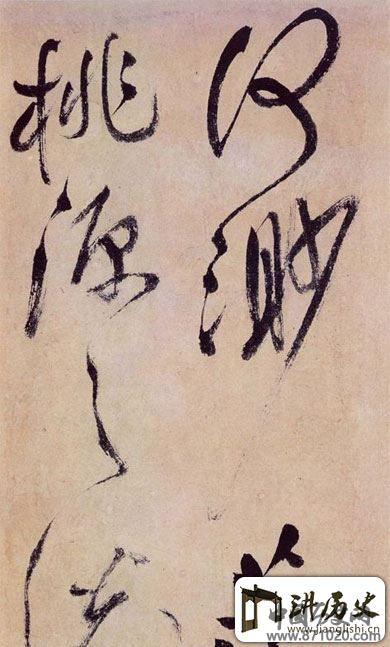 何渺茫
桃源之说
讲历史
www.jianglishi.cn
www.871020.com